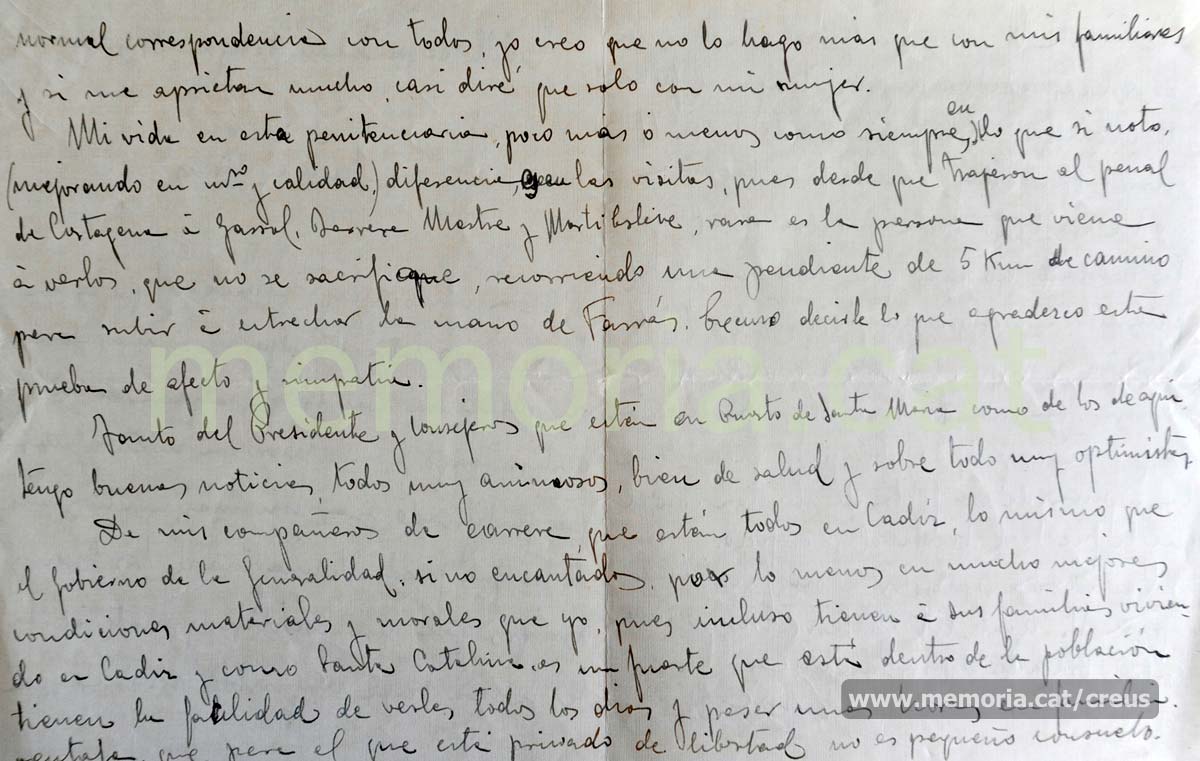 normal correspondencia con todos, yo creo que no lo hago mas que con mis familiares
y si me aprietan mucho, casi diré que solo con mi mujer.
Mi vida en esta penitenciaria, poco mas ó menos como siempre, en lo que si noto,
(mejorando en nº y calidad,) diferencia, en las visitas, pues desde que trajeron al penal
de Cartagena á Gassol, Barrera Mestre y Marti Esteve, rara es la persona que viene
á verlos, que no se sacrifique, recorriendo una pendiente de 5 Km de camino
para subir á estrechar la mano de Farrás. Excuso decirle lo que agradezco esta
prueba de afecto y simpatia.
Tanto del Presidente y Consejeros que están en Puerto de Santa Maria como de los de aqui
tengo buenas noticias, todos muy animosos, bien de salud y sobre todo muy optimistas
De mis compañeros de carrera, que están todos en Cadiz, lo mismo que
el Gobierno de la Generalidad, sino encantados, por lo menos en mucho mejores
condiciones materiales y morales que yo, pues incluso tienen á sus familias vivien-
do en Cadiz y como Santa Catalina es un fuerte que está dentro de la población
tienen la facilidad de verles todos los dias y pasar unas horas en
que para el que está privado de libertad no es pequeño consuelo.
memoria.cat
www.memoria.cat/creus